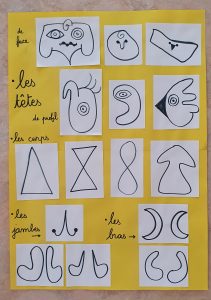 de
face
• les
têtes
de profil
• les corps
• les
jambes →
• les
bras →